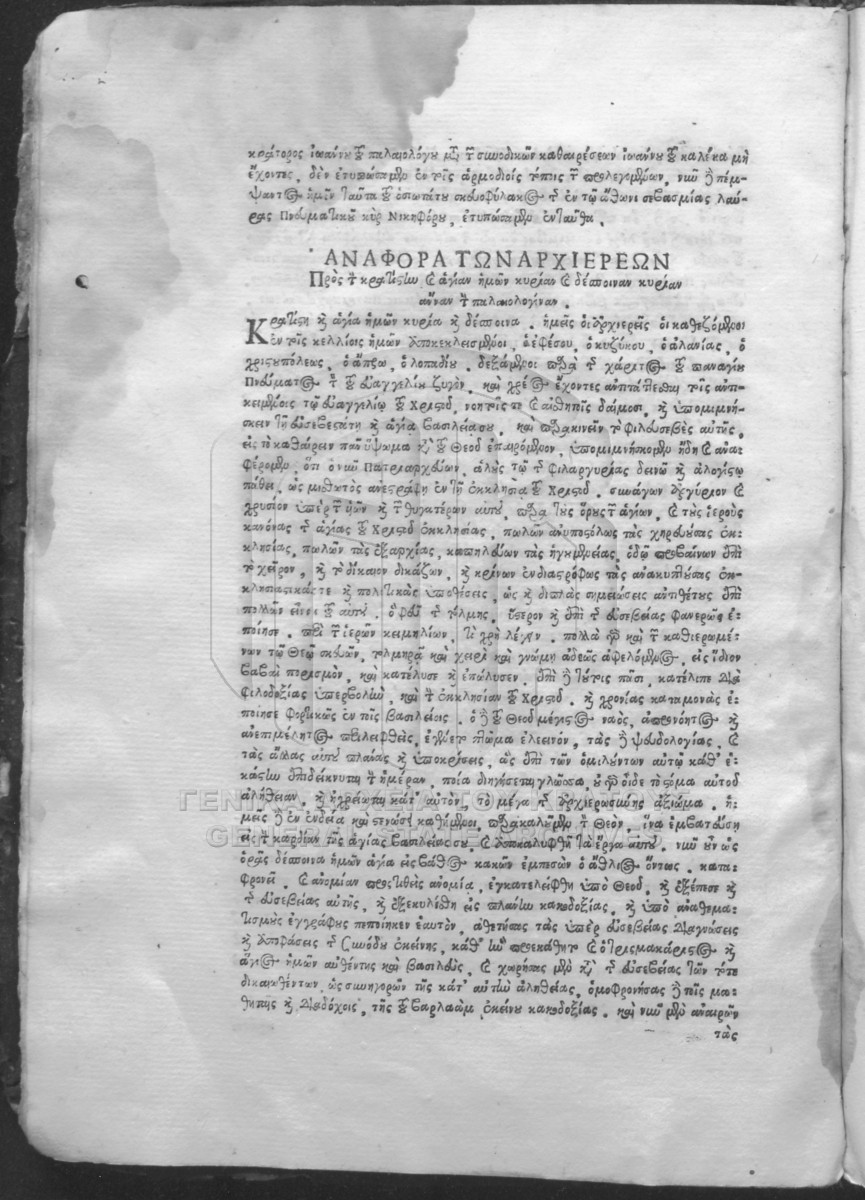 κράτορος ἰωάννου τοῦ παλαιολόγου μετὰ τῶν συνοδικῶν καθαιρέσεων ἰωάννου τοῦ καλέκα μὴ
ἔχοντες, δὲν ἐτυπώσαμεν ἐν τοῖς ἁρμοδίοις τόποις τῶν προλεγομένων, νῦν δὲ πέμ-
ψαντος ἡμῖν ταῦτα τοῦ ὁσιωτάτου σκευοφύλακος τῆς ἐν τῷ ἄθωνι σεβασμίας λαύ-
ρας Πνευματικοῦ κὺρ Νικηφόρου, ἐτυπώσαμεν ἐνταῦθα.
ΑΝΑΦΟΡΑ ΤΩΝ ΑΡΧΙΕΡΕΩΝ
Πρὸς τὴν κρατίστην καὶ ἁγίαν ἡμῶν κυρίαν καὶ δέσποιναν κυρίαν
ἄνναν τὴν παλαιολογίναν.
Κρατίστη καὶ ἁγία ἡμῶν κυρία καὶ δέσποινα. ἡμεῖς οἱ ἀρχιερεῖς οἱ καθεζόμενοι
ἐν τοῖς κελλίοις ἡμῶν ἀποκεκλεισμένοι, ὁ ἐφέσου, ὁ κυζίκου, ὁ ἀλανίας, ὁ
χριστουπόλεως, ὁ ἄπρω, ὁ λοπαδίου. δεξάμενοι παρὰ τῆς χάριτος τοῦ παναγίου
Πνεύματος τὸν τοῦ εὐαγγελίου ζυγὸν, καὶ χρέος ἔχοντες ἀντιτάττεσθαι τοῖς ἀντι-
κειμένοις τῷ εὐαγγελίῳ τοῦ Χριστοῦ, νοητοῖς τε καὶ αἰσθητοῖς δαίμοσι, καὶ ὑπομιμνή-
σκειν τῇ εὐσεβεστάτῃ καὶ ἁγίᾳ βασιλείᾳ σου, καὶ παραινεῖν τὸ φιλευσεβὲς αὐτῆς,
εἰς τὸ καθαίρειν πᾶν ὕψωμα κατὰ τοῦ Θεοῦ ἐπαιρόμενον, ὑπομιμνήσκομεν ἤδη καὶ ἀνα-
φέρομεν ὅτι ὁ νῦν Πατριαρχεύων, ἁλοὺς τῷ τῆς φιλαργυρίας δεινῷ καὶ ἀλογίστῳ
πάθει, ὡς μισθωτὸς ἀνεστράφη ἐν τῇ ἐκκλησίᾳ τοῦ Χριστοῦ. συνάγων ἀργύριον καὶ
χρυσίον ὑπὲρ τῶν υἱῶν καὶ τῶν θυγατέρων αὐτοῦ, παρὰ τοὺς ὅρους τῶν ἁγίων, καὶ τοὺς ἱεροὺς
κανόνας τῆς ἁγίας τοῦ Χριστοῦ ἐκκλησίας, πωλῶν ἀνυποστόλως τὰς χηρευούσας ἐκ-
κλησίας, πωλῶν τὰς ἐξαρχίας, καπηλεύων τὰς ἡγουμενείας, ὁδῷ προβαίνων ἐπὶ
τὸ χεῖρον, καὶ τὸ δίκαιον δικάζων, καὶ κρίνων ἐνδιαστρόφως τὰς ἀνακυπτούσας ἐκ-
κλησιαστικάς τε καὶ πολιτικὰς ὑποθέσεις, ὡς καὶ διπλὰς σημειώσεις ἀντιθέτους ἐπὶ
πολλῶν εἶναι τοῦ αὐτοῦ. ὃ φεῦ τῆς τόλμης. ὕστερον καὶ ἐπὶ τῆς εὐσεβείας φανερῶς ἐ-
ποίησε. περὶ τῶν ἱερῶν κειμηλίων, τί χρὴ λέγειν. πολλὰ γὰρ καὶ τῶν καθιερωμέ-
νων τῷ Θεῷ σκευῶν, τολμηρᾷ καὶ χειρὶ καὶ γνώμῃ ἀδεῶς ἀφελόμενος, εἰς ἴδιον
βαβαὶ πορισμὸν, καὶ κατέλυσε καὶ ἐπώλησεν. ἐπὶ δὲ τούτοις πᾶσι, κατέλιπε διὰ
φιλοδοξίας ὑπερβολὴν, καὶ τὴν ἐκκλησίαν τοῦ Χριστοῦ. καὶ χρονίας καταμονὰς ἐ-
ποίησε φορτικῶς ἐν τοῖς βασιλείοις. ὁ δὲ τοῦ Θεοῦ μέγιστος ναὸς, ἀπρονόητος καὶ
ἀνεπιμέλητος περιλειφθεὶς, ἐγένετο πτῶμα ἐλεεινόν, τὰς δὲ ψευδολογίας, καὶ
τὰς ἄλλας αὐτοῦ πλάνας καὶ ὑποκρίσεις, ἃς ἐπὶ τῶν ὁμιλούντων αὐτῷ καθ' ἑ-
κάστην ἐπιδείκνυται τὴν ἡμέραν, ποία διηγήσεται γλῶσσα. οὐ γὰρ οἶδε τὸ στόμα αὐτοῦ
ἀλήθειαν. καὶ ἠχρείωται κατ' αὐτὸν, τὸ μέγα τῆς ἀρχιερωσύνης ἀξίωμα. ἡ-
μεῖς δὲ ἐν ἐνδείᾳ καὶ στενώσει καθήμενοι, παρακαλοῦμεν τὸν Θεὸν, ἵνα ἐμβατεύσῃ
εἰς τὴν καρδίαν τῆς ἁγίας βασιλείας σου, καὶ ἀποκαλυφθῇ τὰ ἔργα αὐτοῦ. νῦν οὖν ὡς
ὁρᾷς δέσποινα ἡμῶν ἁγία εἰς βάθος κακῶν ἐμπεσὼν ὁ ἄθλιος ὄντως. κατα-
φρονεῖ. καὶ ἀνομίαν προστιθεὶς ἀνομίᾳ, ἐγκατελείφθη ὑπὸ Θεοῦ, καὶ ἐξέπεσε καὶ
τῆς εὐσεβείας αὐτῆς, καὶ ἐξεκυλίσθη εἰς πλάνην κακοδοξίας, καὶ ὑπὸ ἀναθεμα-
τισμοὺς ἐγγράφους πεποίηκεν ἑαυτὸν, ἀθετήσας τὰς ὑπὲρ εὐσεβείας διαγνώσεις
καὶ ἀποφάσεις τῆς Συνόδου ἐκείνης, καθ' ἣν προεκάθητο καὶ ὁ τρισμακάριστος καὶ
ἅγιος ἡμῶν αὐθέντης καὶ βασιλεὺς, καὶ χωρήσας μὲν κατὰ τῆς εὐσεβείας τῶν τότε
δικαιωθέντων, ὡς συνηγορῶν τῆς κατ' αὐτὴν ἀληθείας, ὁμοφρονήσας δὲ τοῖς μα-
θηταῖς καὶ διαδόχοις, τῆς τοῦ βαρλαὰμ ἐκείνου κακοδοξίας. καὶ νῦν μὲν ἀναιρῶν
τὰς
ΓΕΝΙΚΑ ΑΡΧΕΙΑ ΤΟΥ ΚΡΑΤΟΥΣ
GENERAL STATE ARCHIVES